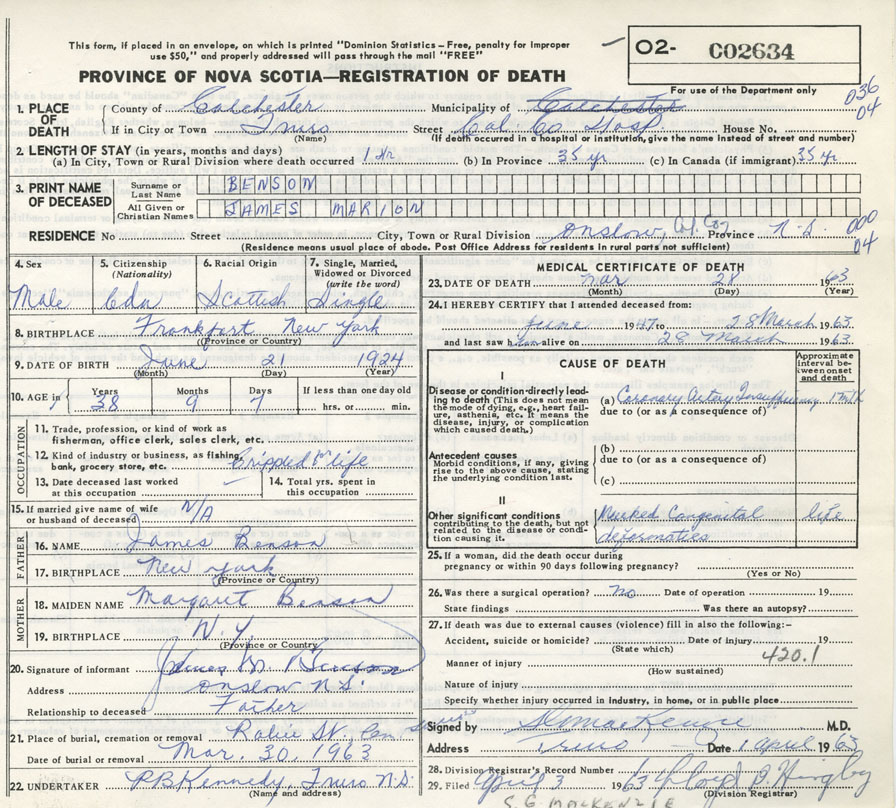 This form, if placed in an envelope, on which is printed "Dominion Statistics – Free, penalty for improper
use $50," and properly addressed will pass through the mail "FREE"
O2- CO2634
PROVINCE OF NOVA SCOTIA—REGISTRATION OF DEATH
For use of the Department only
036
04
1. PLACE OF DEATH { County of Colchester Municipality of Colchester
If in City or Town Truro (Name) Street Col. Co. Hosp. House No.
(If death occurred in a hospital or institution, give the name instead of street and number)
2. LENGTH OF STAY (in years, months and days)
(a) In City, Town or Rural Division where death occurred 1 Hr (b) In Province 35 yr (c) In Canada (if immigrant) 35 yr
3. PRINT NAME OF DECEASED { Surname or Last Name BENSON
All Given or Christian Names JAMES MARION
RESIDENCE No Street City, Town or Rural Division Onslow, Col. Co. Province N.S.
000
04
(Residence means usual place of abode. Post Office Address for residents in rural parts not sufficient)
4. Sex Male
5. Citizenship (Nationality) Cdn
6. Racial Origin Scottish
7. Single, Married, Widowed or Divorced (write the word) Single
8. BIRTHPLACE Frankfort New York
(Province or Country)
9. DATE OF BIRTH June 21 1924
(Month) (Day) (Year)
10. AGE in { Years 38 Months 9 Days 7 If less than one day old
hrs. or min.
OCCUPATION
11. Trade, profession, or kind of work as
fisherman, office clerk, sales clerk, etc.
12. Kind of industry or business, as fishing,
bank, grocery store, etc. Crippled for life
13. Date deceased last worked
at this occupation
14. Total yrs. spent in
this occupation
15. If married give name of wife
or husband of deceased N/A
FATHER
16. NAME James Benson
17. BIRTHPLACE New York
(Province or Country)
MOTHER
18. MAIDEN NAME Margaret Benson
19. BIRTHPLACE N.Y.
(Province or Country)
20. Signature of informant James M. Benson
Address Onslow N.S.
Relationship to deceased Father
21. Place of burial, cremation or removal Robie St. Cem
Date of burial or removal Mar. 30, 1963
22. UNDERTAKER R B Kennedy, Truro N.S.
(Name and address)
MEDICAL CERTIFICATE OF DEATH
23. DATE OF DEATH Mar 28 1963
(Month) (Day) (Year)
24. I HEREBY CERTIFY that I attended deceased from:
June 1947 to 28 March 1963
and last saw him alive on 28 March 1963
CAUSE OF DEATH
Approximate interval between onset and death
I
Disease or condition directly leading to death (This does not mean
the mode of dying, e.g., heart failure, asthenia, etc. It means the
disease, injury, or complication
which caused death.)
(a) Coronary Artery Insufficiency 1 mth
due to (or as a consequence of)
Antecedent causes
Morbid conditions, if any, giving
rise to the above cause, stating
the underlying condition last.
(b)
due to (or as a consequence of)
(c)
II
Other significant conditions
contributing to the death, but not
related to the disease or condition causing it.
Marked Congenital life
deformaties
25. If a woman, did the death occur during
pregnancy or within 90 days following pregnancy?
(Yes or No)
26. Was there a surgical operation? no Date of operation 19
State findings Was there an autopsy?
27. If death was due to external causes (violence) fill in also the following:-
Accident, suicide or homicide? Date of injury 19
(State which)
420.1
Manner of injury
(How sustained)
Nature of injury
Specify whether injury occurred in industry, in home, or in public place
Signed by SG MacKenzie M.D.
Address Truro Date 1 April 1963
28. Division Registrar's Record Number
29. Filed April 3 1963 Floyd
(Division Registrar)
S. G MACKENZIE